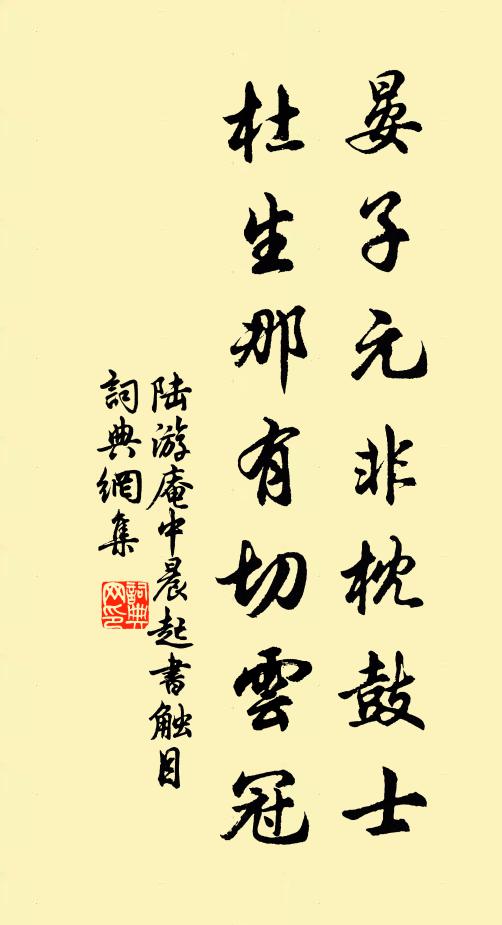 晏子元非枕鼓士
杜生那有切雲冠
陆游庵中晨起書触目
詞典網集
詞典网印